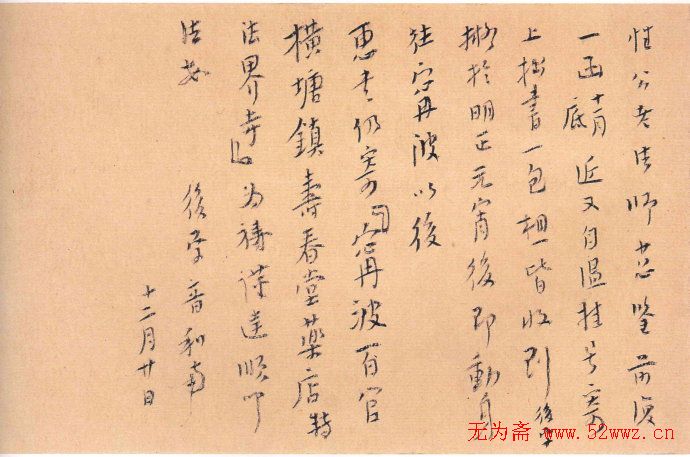 性公老法師慈鑒前復
一函十一月底近又自溫挂号寄
上拙書一包想皆收到後學
擬於明正元宵後即動身
往甯波以後
惠書仍寄「甯波百官
橫塘鎮壽春堂藥店
法界寺」為禱謹達順叩
法安
後學音和南
十二月廿日
无为斋 www.52wwz.cn